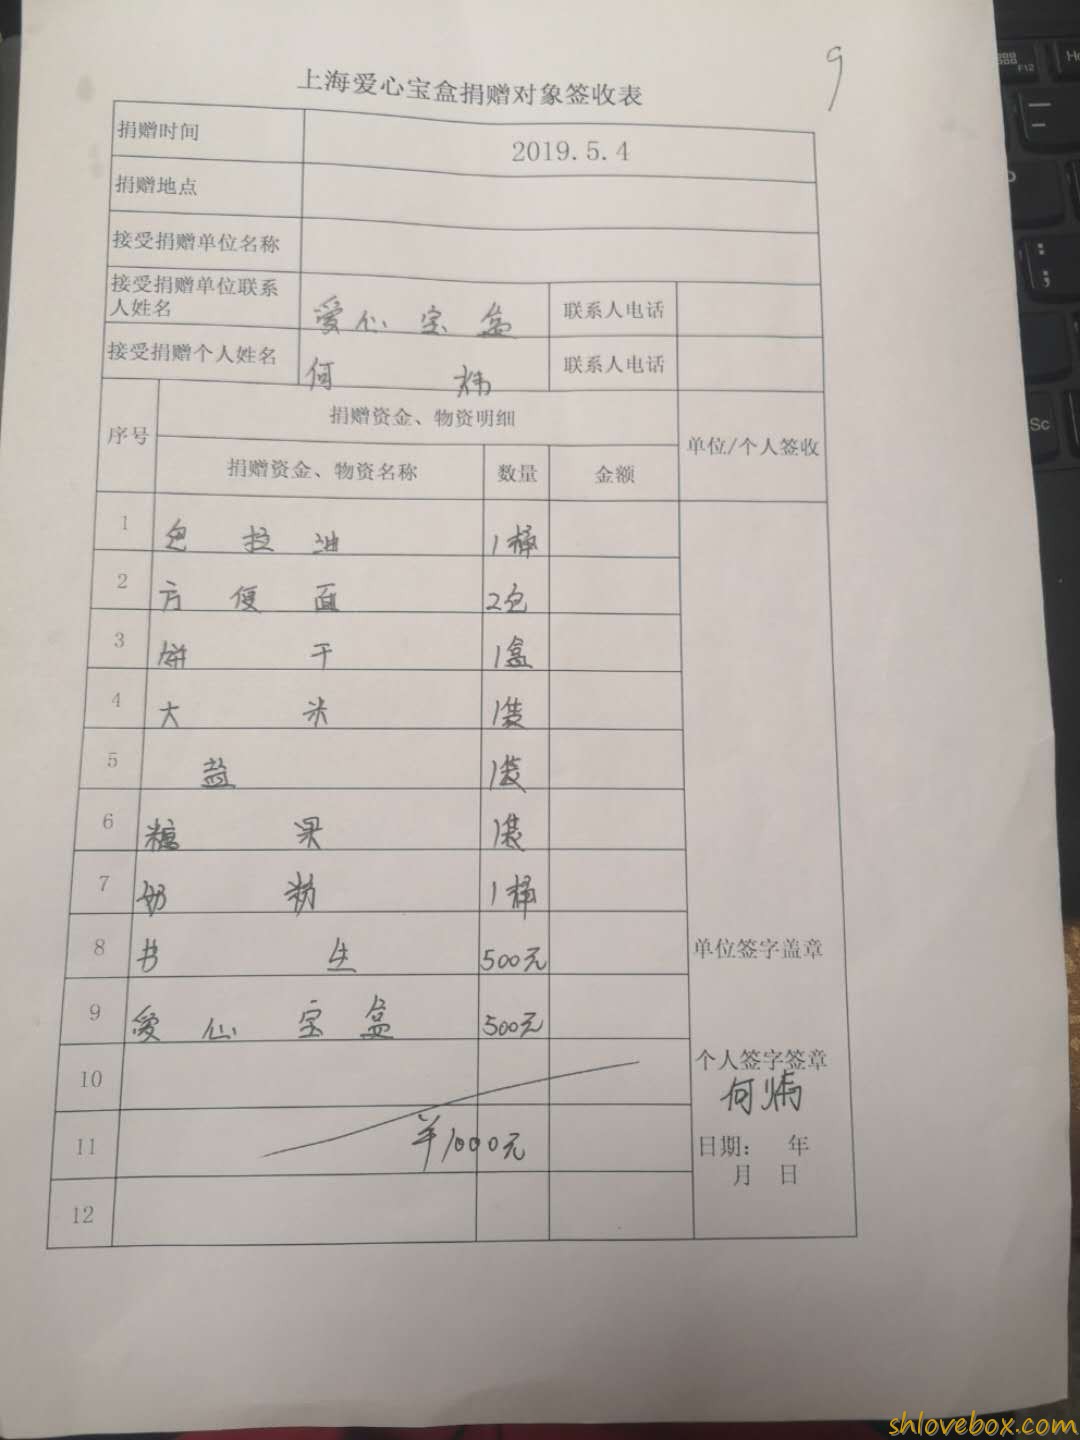 9
上海爱心宝盒捐赠对象签收表
捐赠时间 2019.5.4
捐赠地点
接受捐赠单位名称
接受捐赠单位联系人姓名 爱心宝盒 联系人电话
接受捐赠个人姓名 何 联系人电话
序号 捐赠资金、物资明细 单位/个人签收
捐赠资金、物资名称 数量 金额
1 色拉油 1桶
2 方便面 2包
3 饼干 1盒
4 大米 1袋
5 盐 1袋
6 糖果 1袋
7 奶粉 1桶
8 书生 500元
9 爱心宝盒 500元
10
11 ¥1000元
12
单位签字盖章
个人签字签章
何
日期: 年
月 日
shlovebox.com